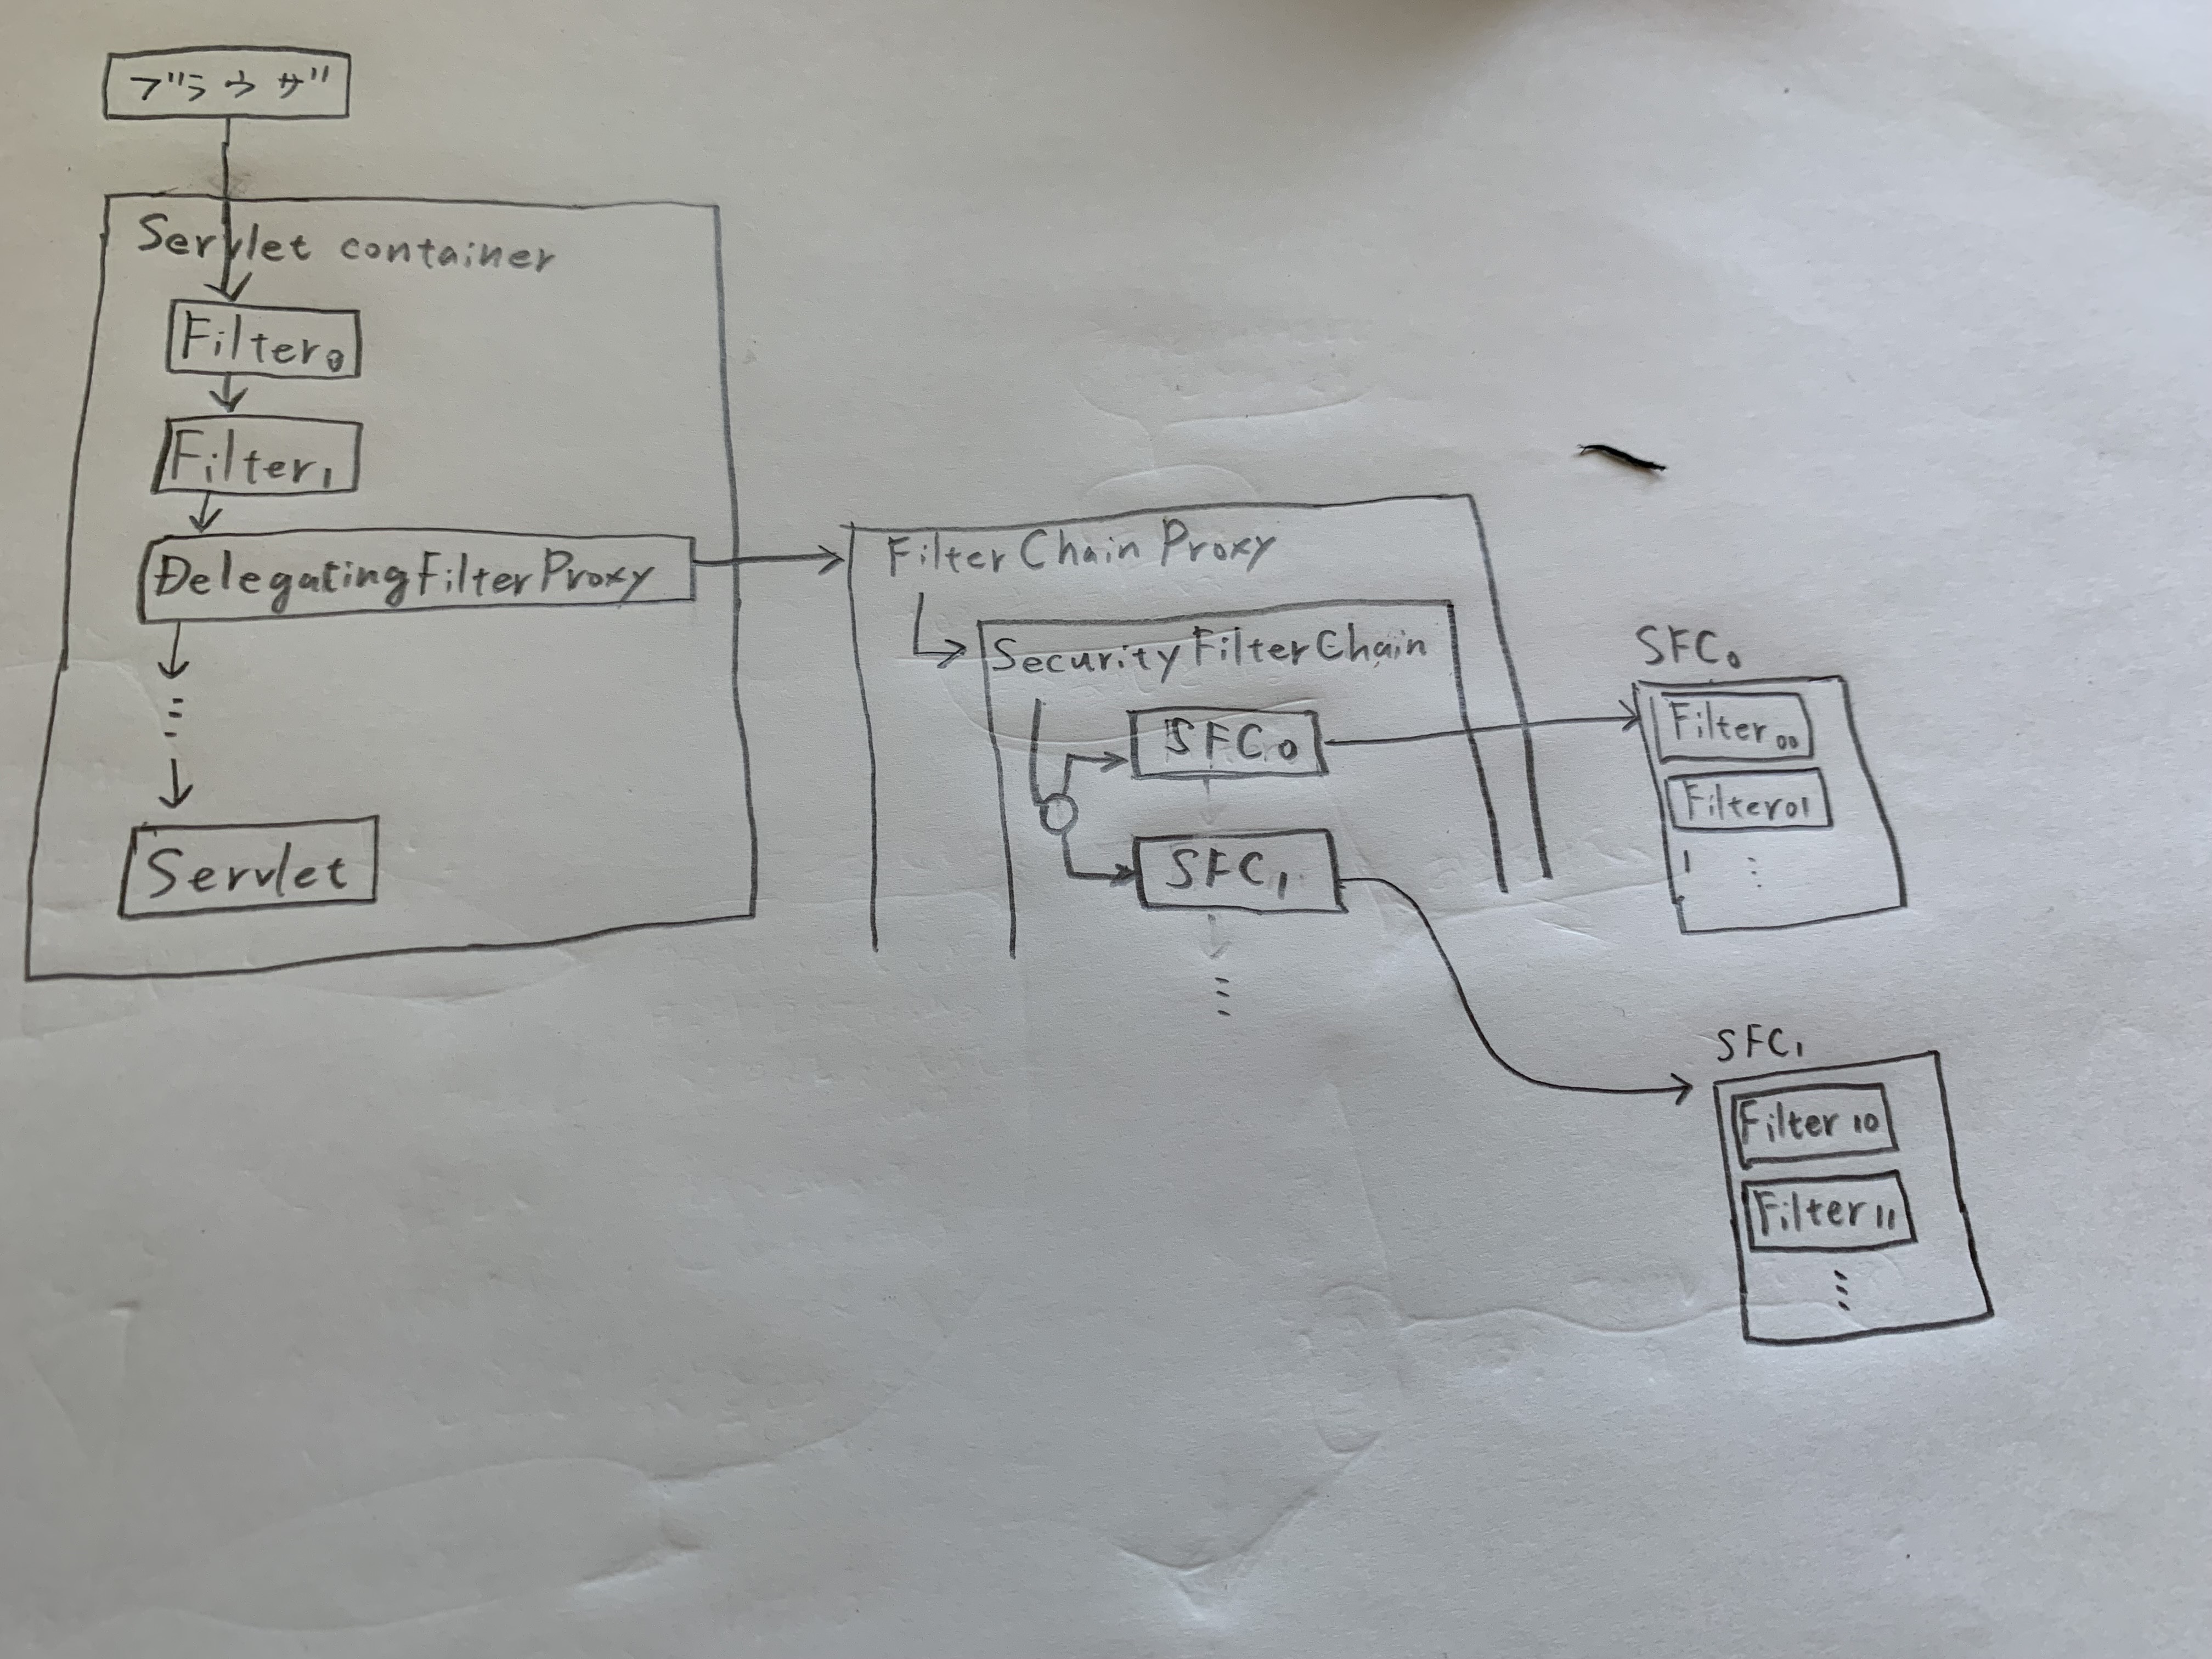 ブラウザ
Servlet container
Filter0
Filter1
DelegatingFilterProxy
⋮
Servlet
Filter Chain Proxy
Security Filter Chain
SFC0
SFC1
⋮
SFC0
Filter00
Filter01
⋮
SFC1
Filter10
Filter11
⋮